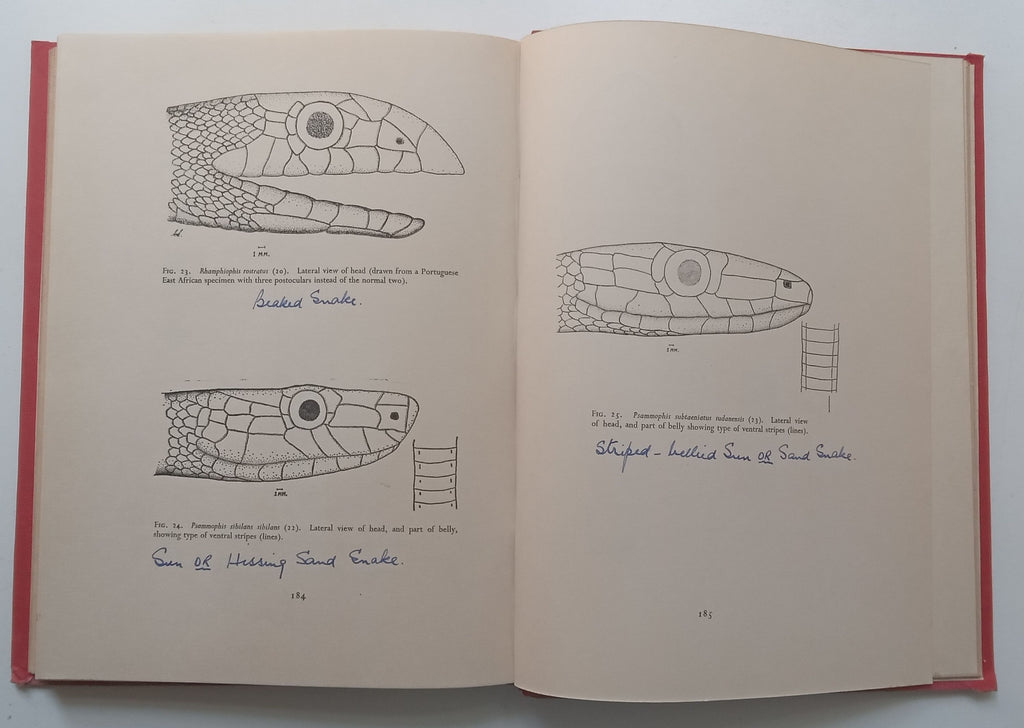 1 MM.
FIG. 23. Rhamphiophis rostratus (20). Lateral view of head (drawn from a Portuguese
East African specimen with three postoculars instead of the normal two).
Beaked Snake.
1 MM.
FIG. 24. Psammophis sibilans sibilans (22). Lateral view of head, and part of belly,
showing type of ventral stripes (lines).
Sun OR Hissing Sand Snake.
184
1 MM.
FIG. 25. Psammophis subtaeniatus sudanensis (23). Lateral view
of head, and part of belly showing type of ventral stripes (lines).
Striped - bellied Sun OR Sand Snake.
185